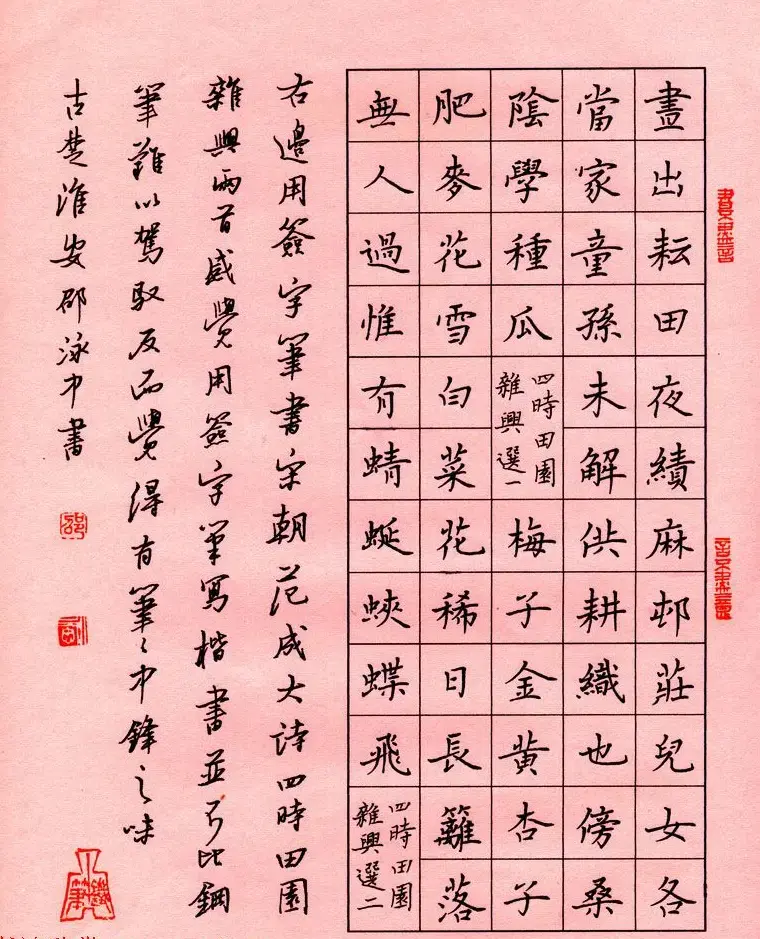 晝出耘田夜績麻邨莊兒女各
當家童孫未解供耕織也傍桑
陰學種瓜
四時田園
雜興選一
梅子金黄杏子
肥麥花雪白菜花稀日長籬落
無人過惟有蜻蜓蛺蝶飛
四時田園
雜興選二
右邊用簽字筆書宋朝范成大诗四時田園
雜興兩首感覺用簽字筆寫楷書並不比鋼
筆難以駕驭反而覺得有筆〻中鋒之味
古楚淮安邵泳中書
邵